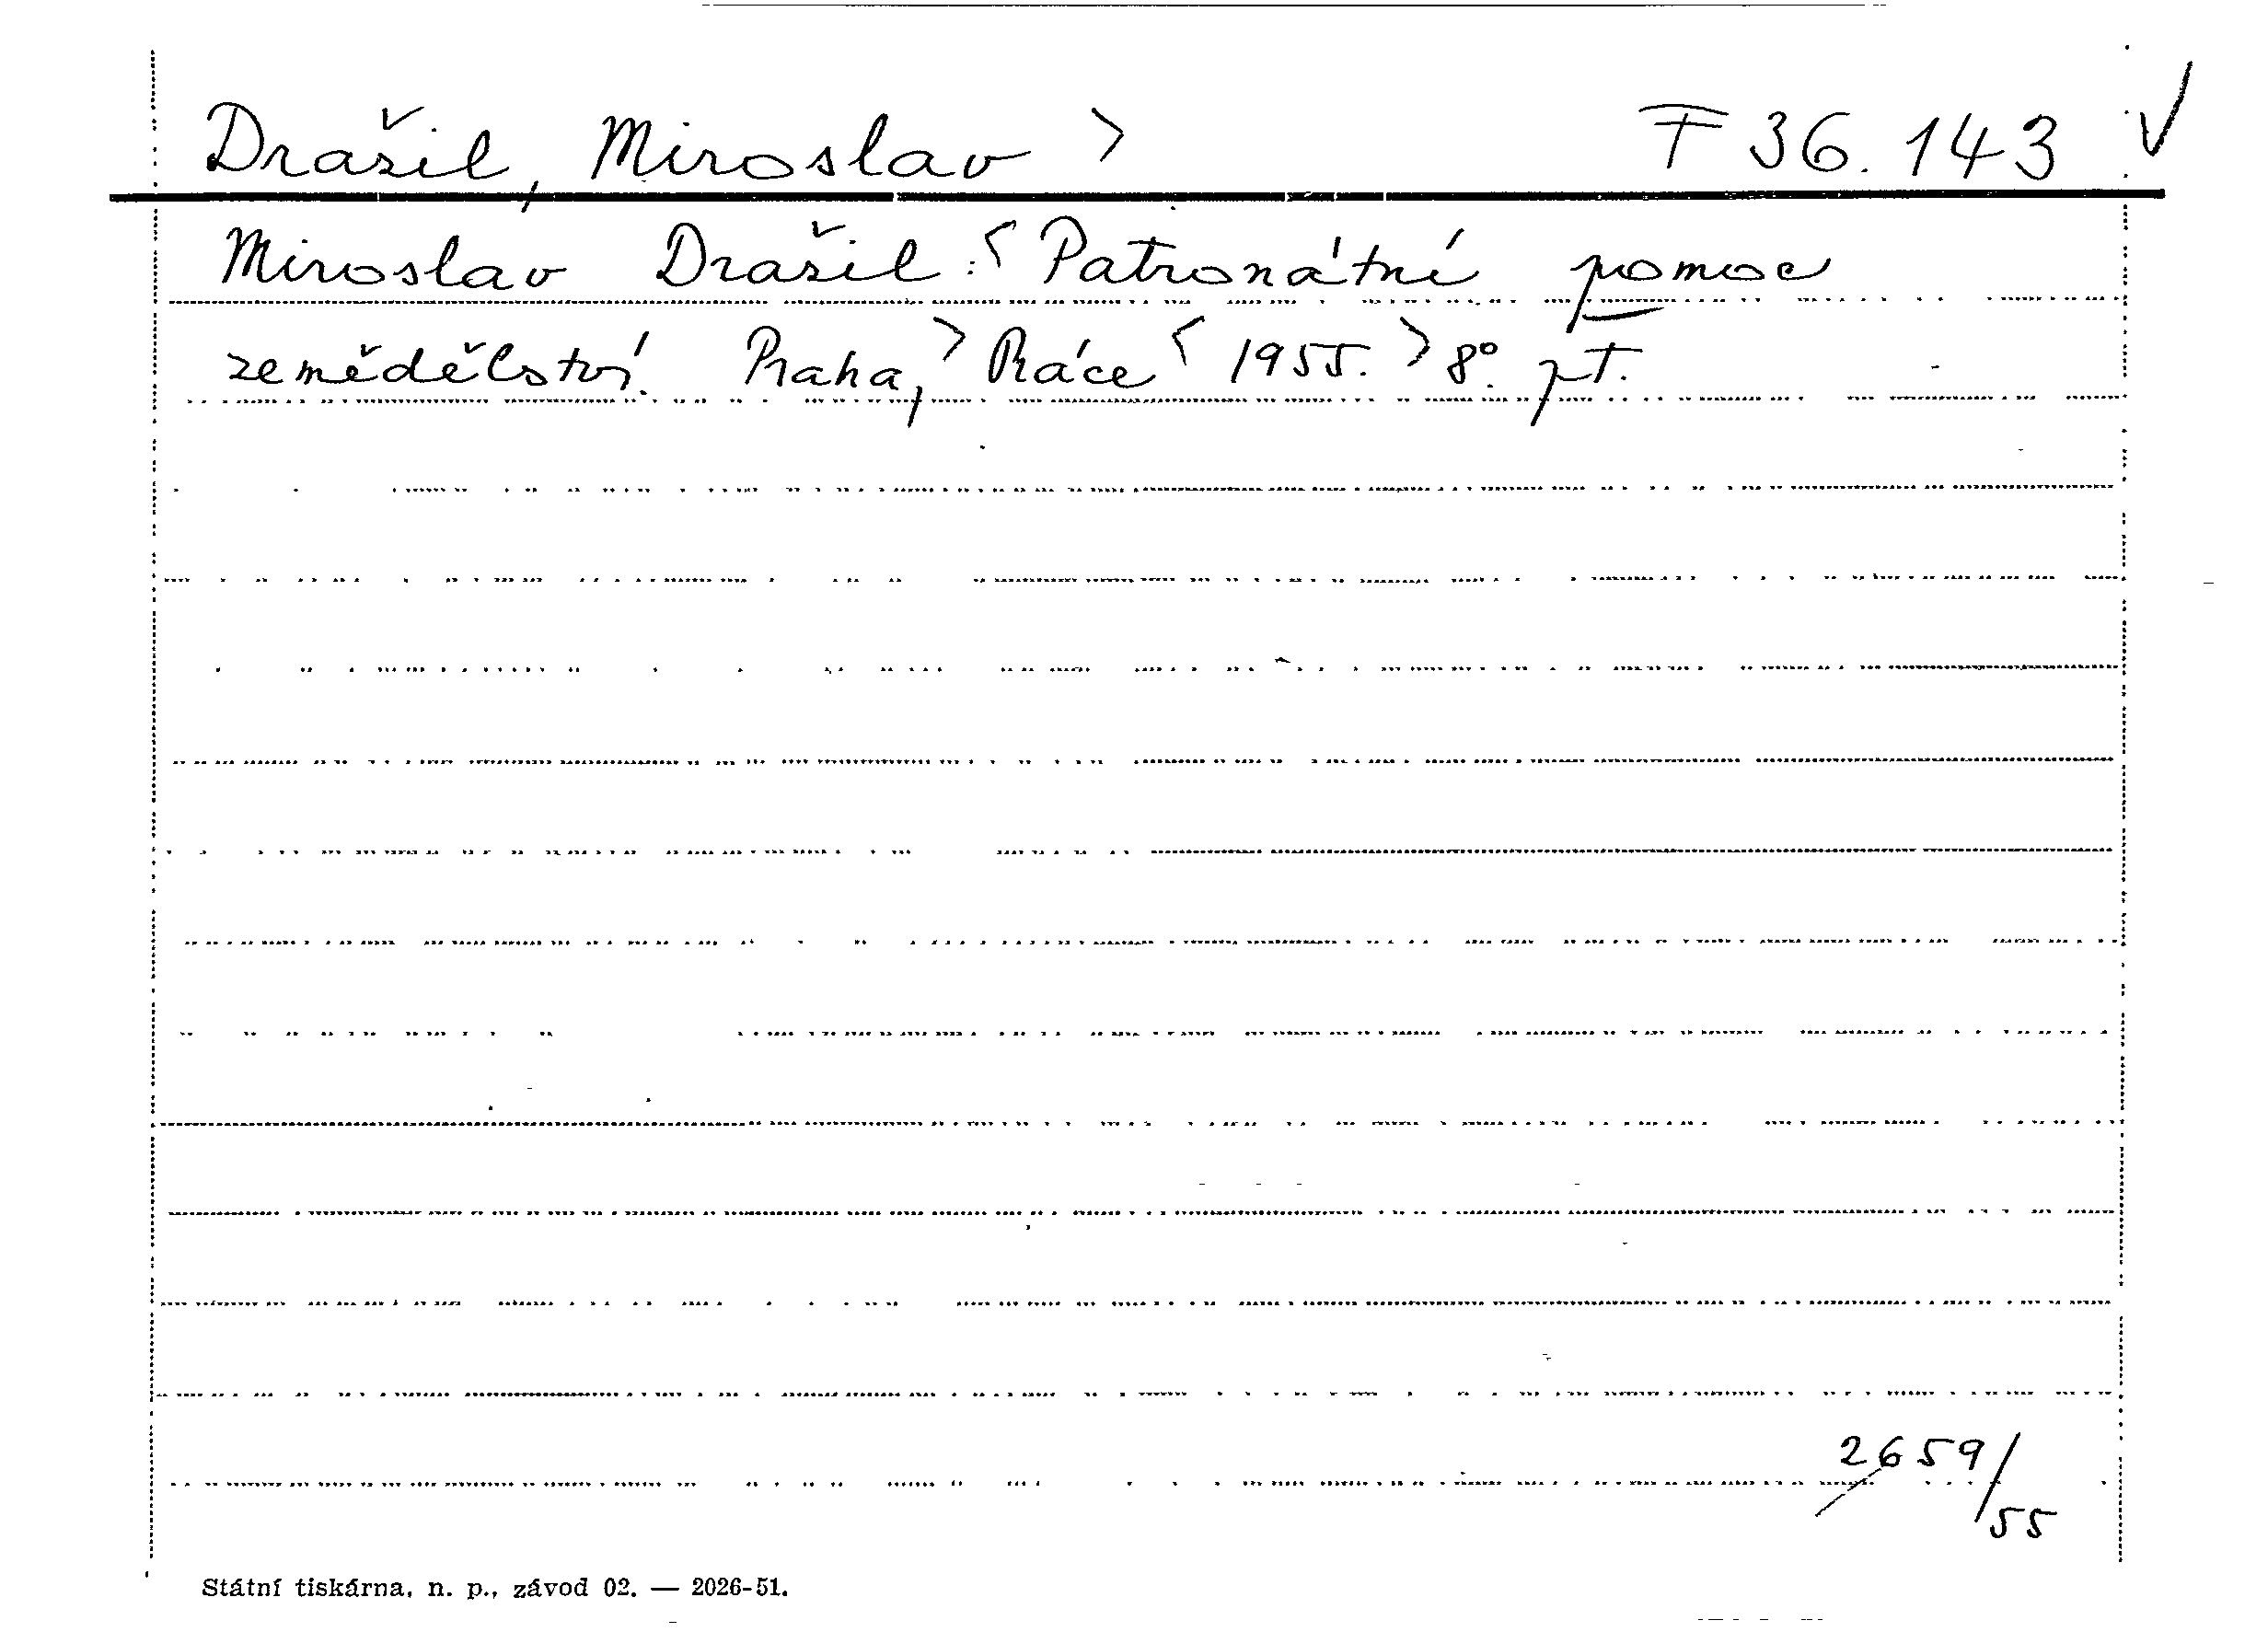 Dražil, Miroslav > F 36.143 √
Miroslav Dražil: < Patronátní pomoc
zemědělství. Praha, > Práce < 1955. > 8°. pT.
2659/
55
Státní tiskárna, n. p., závod 02. — 2026-51.